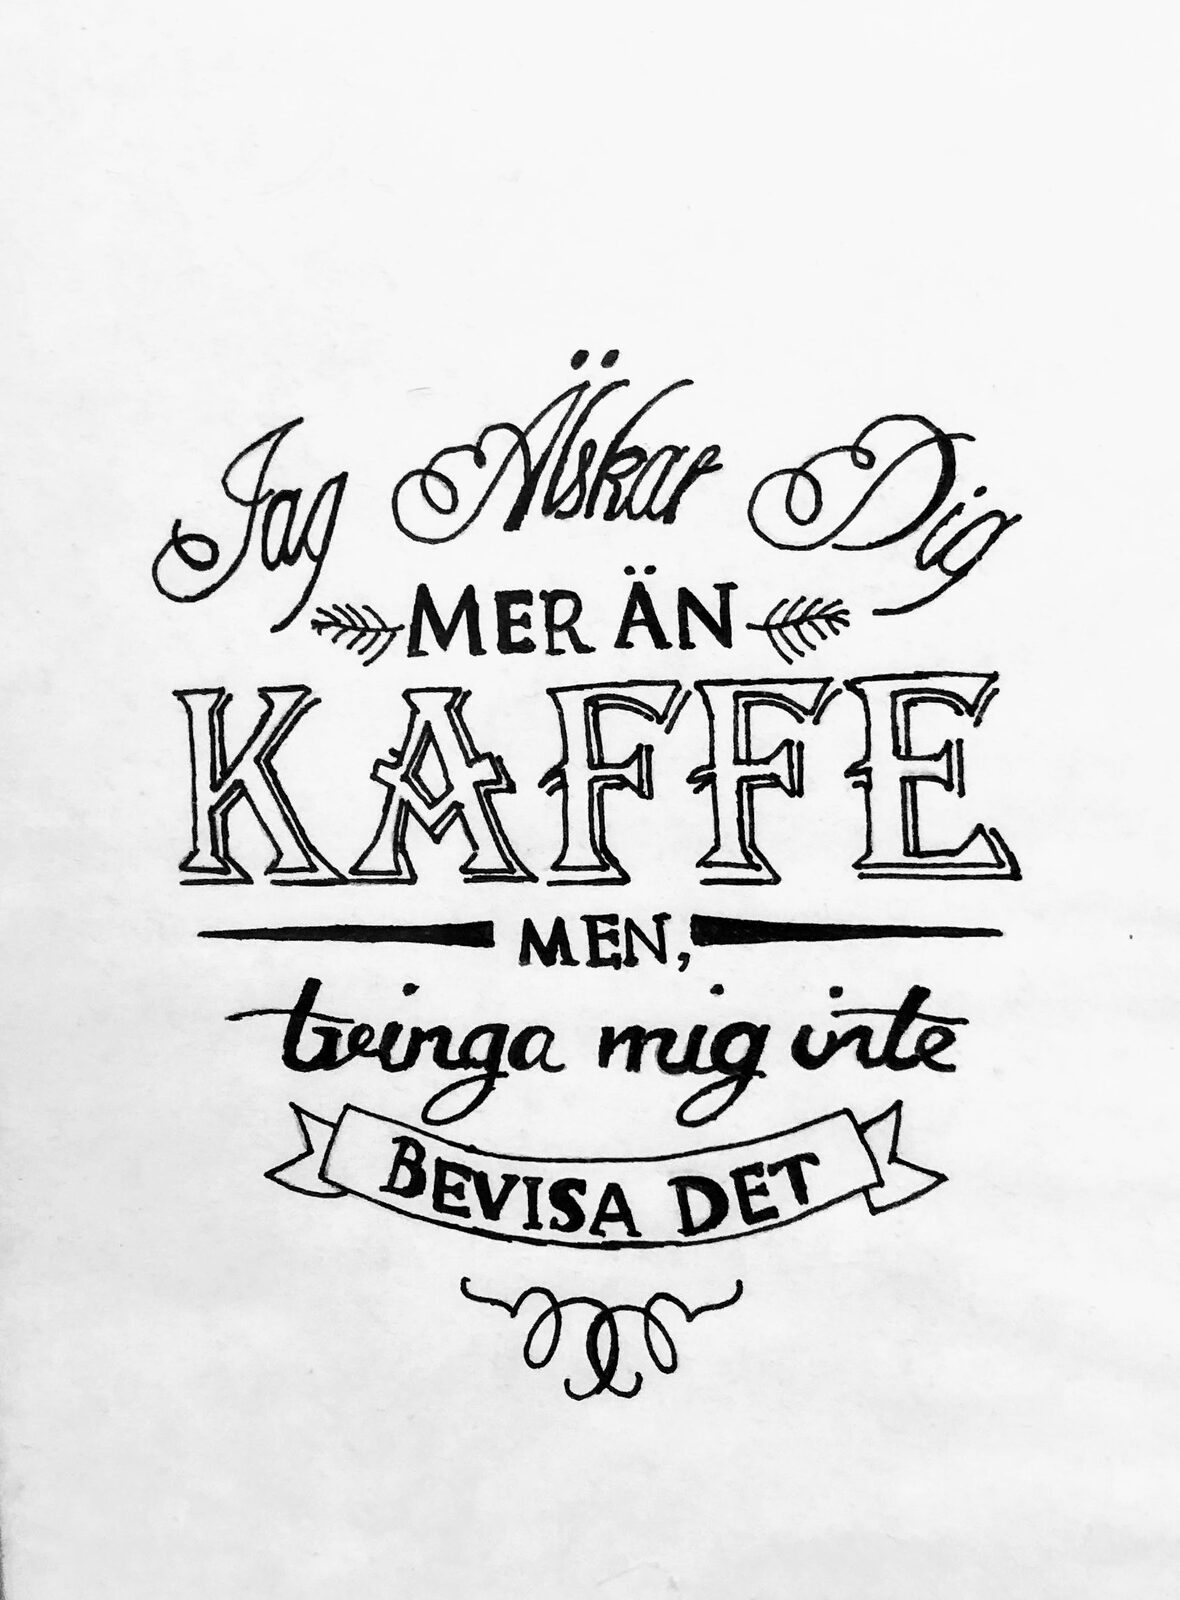 Jag Älskar Dig
MER ÄN
KAFFE
MEN,
tvinga mig inte
BEVISA DET